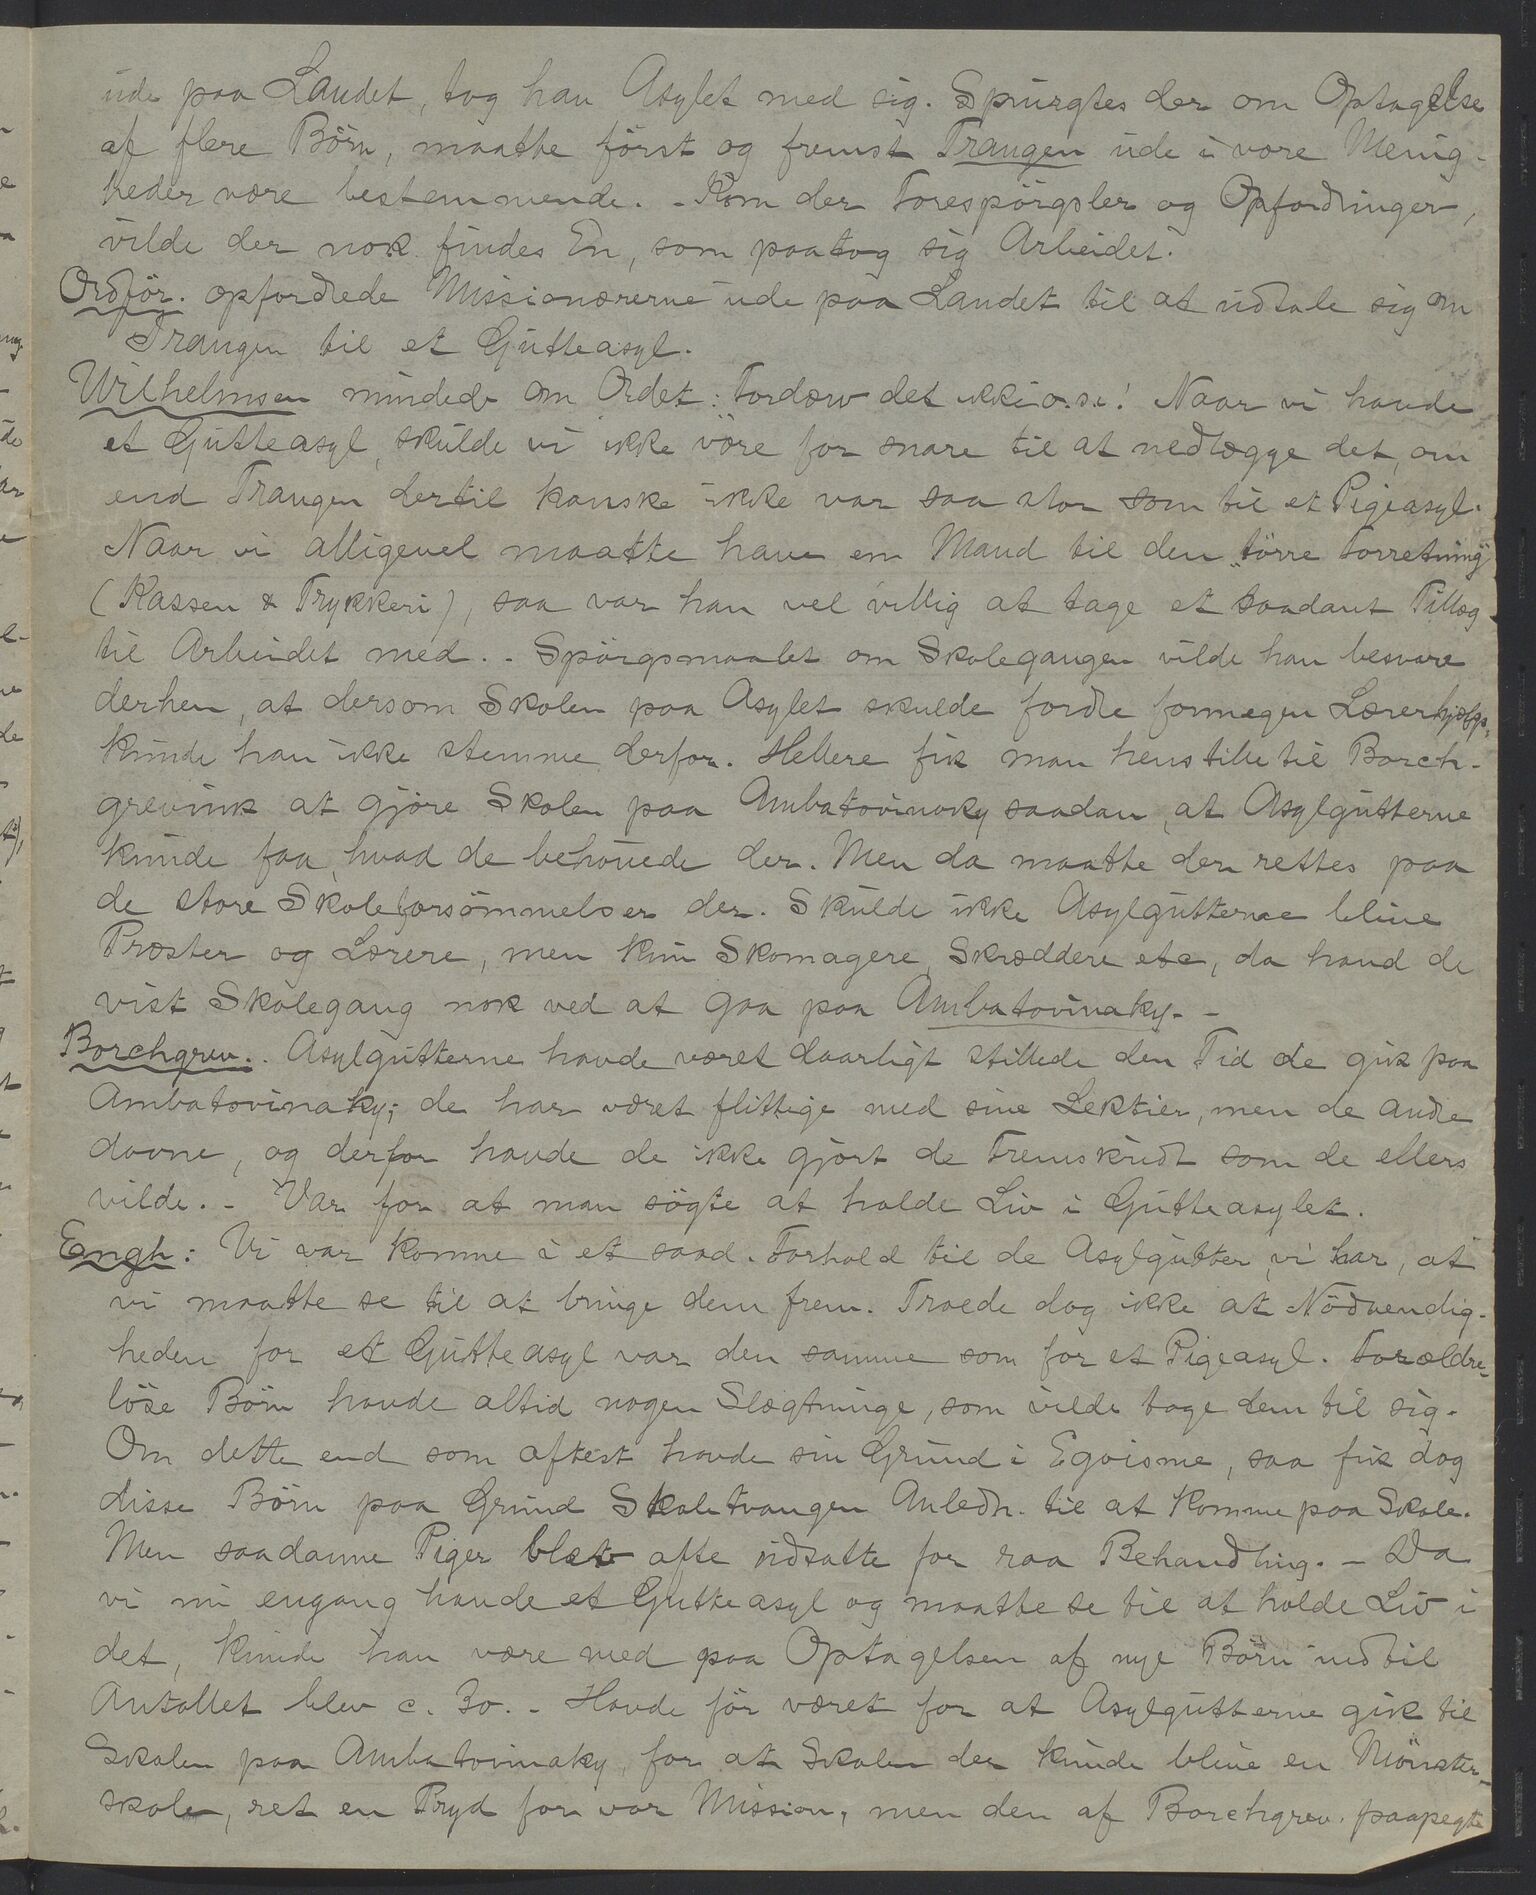 ude paa Landet, tog han Asylet med sig. Spurgtes der om Optagelse
af flere Börn, maatte först og fremst Trangen ude i vore Menig-
heder være bestemmende. - Kom der Forespörgsler og Opfordringer,
vilde der nok findes En, som paatog sig Arbeidet.
Ordför. opfordrede Missionærerne ude paa Landet til at udtale sig om
Trangen til et Gutteasyl.
Wilhelmsen mindede om Ordet: Fordærv det ikke o.s.v.! Naar vi havde
et Gutteasyl, skulde vi ikke være for snare til at nedlægge det, om
end Trangen dertil kanske ikke var saa stor som til et Pigeasyl.
Naar vi alligevel maatte have en Mand til den "törre Forretning"
(Kassen & Trykkeri), saa var han vel villig at tage et saadant Tillæg
til Arbeidet med. - Spörgsmaalet om Skolegangen vilde han besvare
derhen, at dersom Skolen paa Asylet skulde fordre formegen Lærerhjælp,
kunde han ikke stemme derfor. Hellere fik man henstille til Borch-
grevink at gjöre Skolen paa Ambatovinaky saadan, at Asylgutterne
kunde faa, hvad de behövede der. Men da maatte der rettes paa
de store Skoleforsömmelser der. Skulde ikke Asylgutterne blive
Præster og Lærere, men kun Skomagere, Skræddere etc, da havd de
vist Skolegang nok ved at gaa paa Ambatovinaky. -
Borchgrev.. Asylgutterne havde været daarligt stillede den Tid de gik paa
Ambatovinaky; de har været flittige med sine Lektier, men de andre
dovne, og derfor havde de ikke gjort de Fremskridt som de ellers
vilde. - Var for at man sögte at holde Liv i Gutteasylet.
Engh: Vi var komne i et saad. Forhold til de Asylgutter, vi har, at
vi maatte se til at bringe dem frem. Troede dog ikke at Nödvendig-
heden for et Gutteasyl var den samme som for et Pigeasyl. Forældre-
löse Börn havde altid nogen Slægtninge, som vilde tage dem til sig.
Om dette end som oftest havde sin Grund i Egoisme, saa fik dog
disse Börn paa Grund Skoletvangen Anledn. til at komme paa Skole.
Men saadanne Piger blev ofte udsatte for raa Behandling. - Da
vi nu engang havde et Gutteasyl og maatte se til at holde Liv i
det, kunde han være med paa Optagelsen af nye Börn indtil
Antallet blev c. 30. - Havde för været for at Asylgutterne gik til
Skolen paa Ambatovinaky, for at Skolen der kunde blive en Mönster-
skole, ret en Pryd for vor Mission, men den af Borchgrev. paapegte